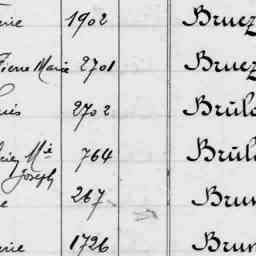 1902 Bruez
Pierre Marie 2701 Bruez
2702 Brûlo
Mie 764 Brûlo
Joseph
267 Brun
1726 Brun